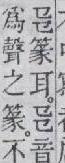 邑篆耳。邑音
為聲之篆。不